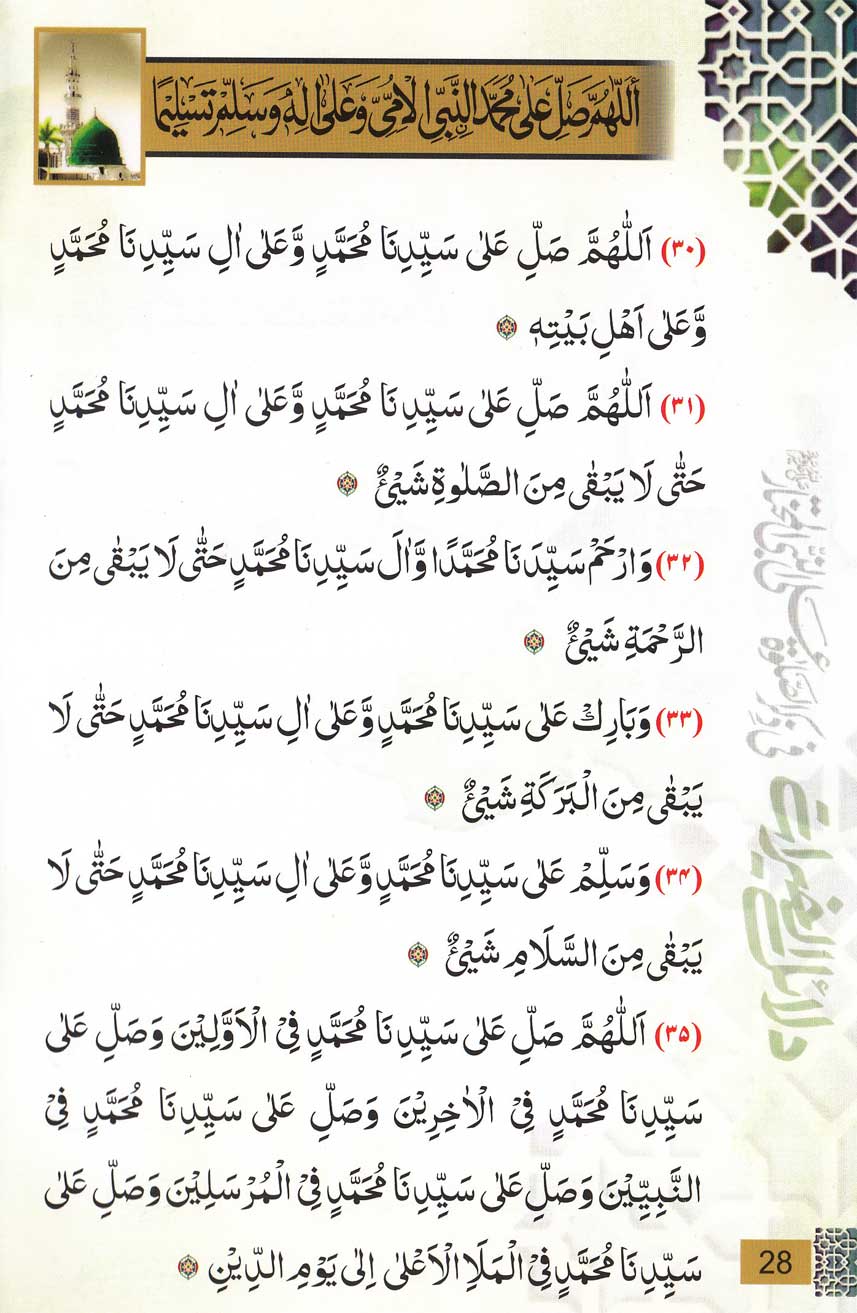 أَللّٰهُمَّ صَلِّ عَلٰى مُحَمَّدِ النَّبِيِّ الْاُمِّيِّ وَعَلٰى اٰلِهٖ وَسَلِّمْ تَسْلِيْمًا
(۳۰) اَللّٰهُمَّ صَلِّ عَلٰى سَيِّدِنَا مُحَمَّدٍ وَّعَلٰى اٰلِ سَيِّدِنَا مُحَمَّدٍ
وَّعَلٰى اَهْلِ بَيْتِهٖ
(۳۱) اَللّٰهُمَّ صَلِّ عَلٰى سَيِّدِنَا مُحَمَّدٍ وَّعَلٰى اٰلِ سَيِّدِنَا مُحَمَّدٍ
حَتّٰى لَا يَبْقٰى مِنَ الصَّلٰوةِ شَيْئٌ
(۳۲) وَارْحَمْ سَيِّدَنَا مُحَمَّدًا وَّاٰلَ سَيِّدِنَا مُحَمَّدٍ حَتّٰى لَا يَبْقٰى مِنَ
الرَّحْمَةِ شَيْئٌ
(۳۳) وَبَارِكْ عَلٰى سَيِّدِنَا مُحَمَّدٍ وَّعَلٰى اٰلِ سَيِّدِنَا مُحَمَّدٍ حَتّٰى لَا
يَبْقٰى مِنَ الْبَرَكَةِ شَيْئٌ
(۳۴) وَسَلِّمْ عَلٰى سَيِّدِنَا مُحَمَّدٍ وَّعَلٰى اٰلِ سَيِّدِنَا مُحَمَّدٍ حَتّٰى لَا
يَبْقٰى مِنَ السَّلَامِ شَيْئٌ
(۳۵) اَللّٰهُمَّ صَلِّ عَلٰى سَيِّدِنَا مُحَمَّدٍ فِى الْاَوَّلِيْنَ وَصَلِّ عَلٰى
سَيِّدِنَا مُحَمَّدٍ فِى الْاٰخِرِيْنَ وَصَلِّ عَلٰى سَيِّدِنَا مُحَمَّدٍ فِى
النَّبِيِّيْنَ وَصَلِّ عَلٰى سَيِّدِنَا مُحَمَّدٍ فِى الْمُرْسَلِيْنَ وَصَلِّ عَلٰى
سَيِّدِنَا مُحَمَّدٍ فِى الْمَلَاِ الْاَعْلٰى اِلٰى يَوْمِ الدِّيْنِ
دلائل الخيرات
28